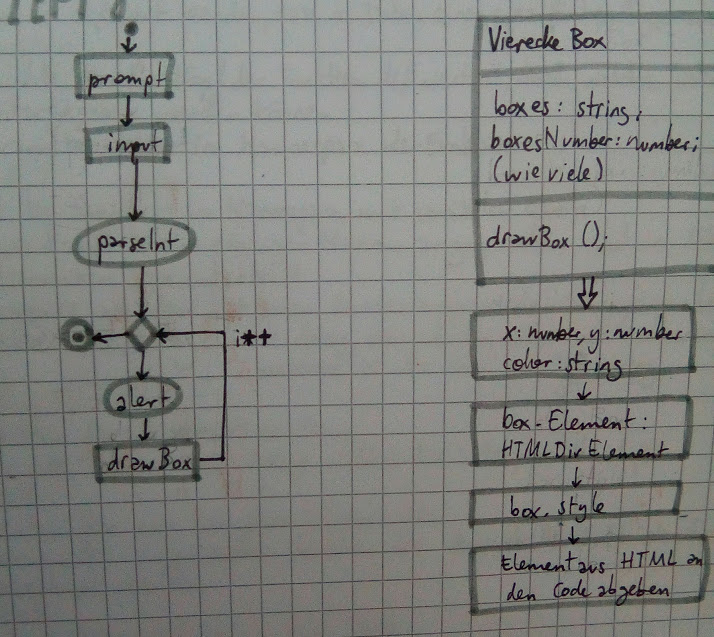 prompt
input
parseInt
i++
alert
drawBox
Vierecke Box
boxes: string;
boxesNumber: number;
(wie viele)
drawBox ();
x: number, y: number
color: string
box-Element:
HTMLDivElement
box.style
Element aus HTML an
den Code abgeben